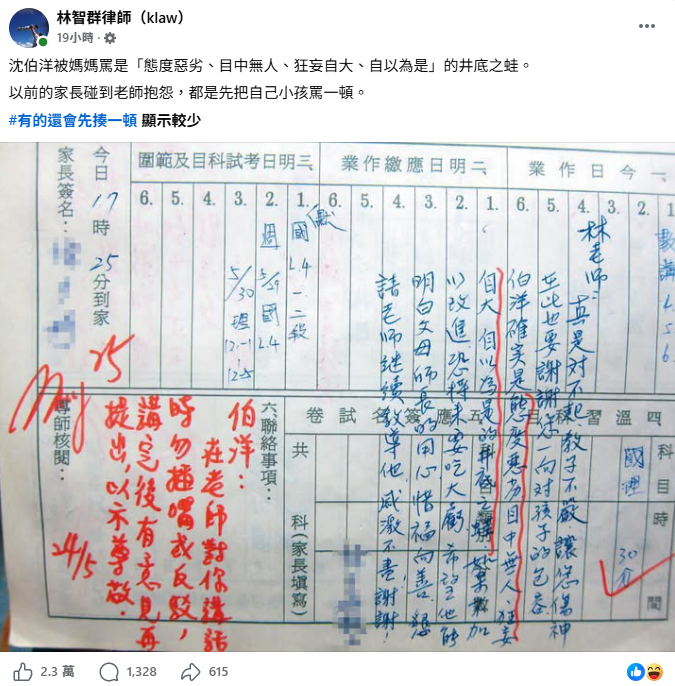 林智群律師（klaw）
19小時
沈伯洋被媽媽罵是「態度惡劣、目中無人、狂妄自大、自以為是」的井底之蛙。
以前的家長碰到老師抱怨，都是先把自己小孩罵一頓。
#有的還會先揍一頓 顯示較少
一今日作業
1.
2.
3.
4.
數講
林老師：
真是對不起，教子不嚴讓您傷神
至此也要謝謝您一向對孩子的包容
伯洋確實是態度惡劣目中無人、狂妄
自大自以為是的井底之蛙
以改進恐將來要吃大虧希望他能
明白父母師長的用心惜福向善懇
請老師繼續教導他感激不盡謝謝！
二明日應繳作業
1.
2.
3.
4.
5.
6.
三明日考試科目及範圍
1.
2.
3.
4.
5.
6.
國L4一二段
週5/29國L4
5/30理
今日17時25分到家
家長簽名：
四溫習科目
科目
時間
國
理
30分
五應簽名試卷
共
科(家長填寫)
六、聯絡事項：
伯洋：
在老師對你講話
時勿插嘴或反駁，
講完後有意見再
提出，以示尊敬。
25
24/5
導師核閱：
2.3 萬
1,328
615